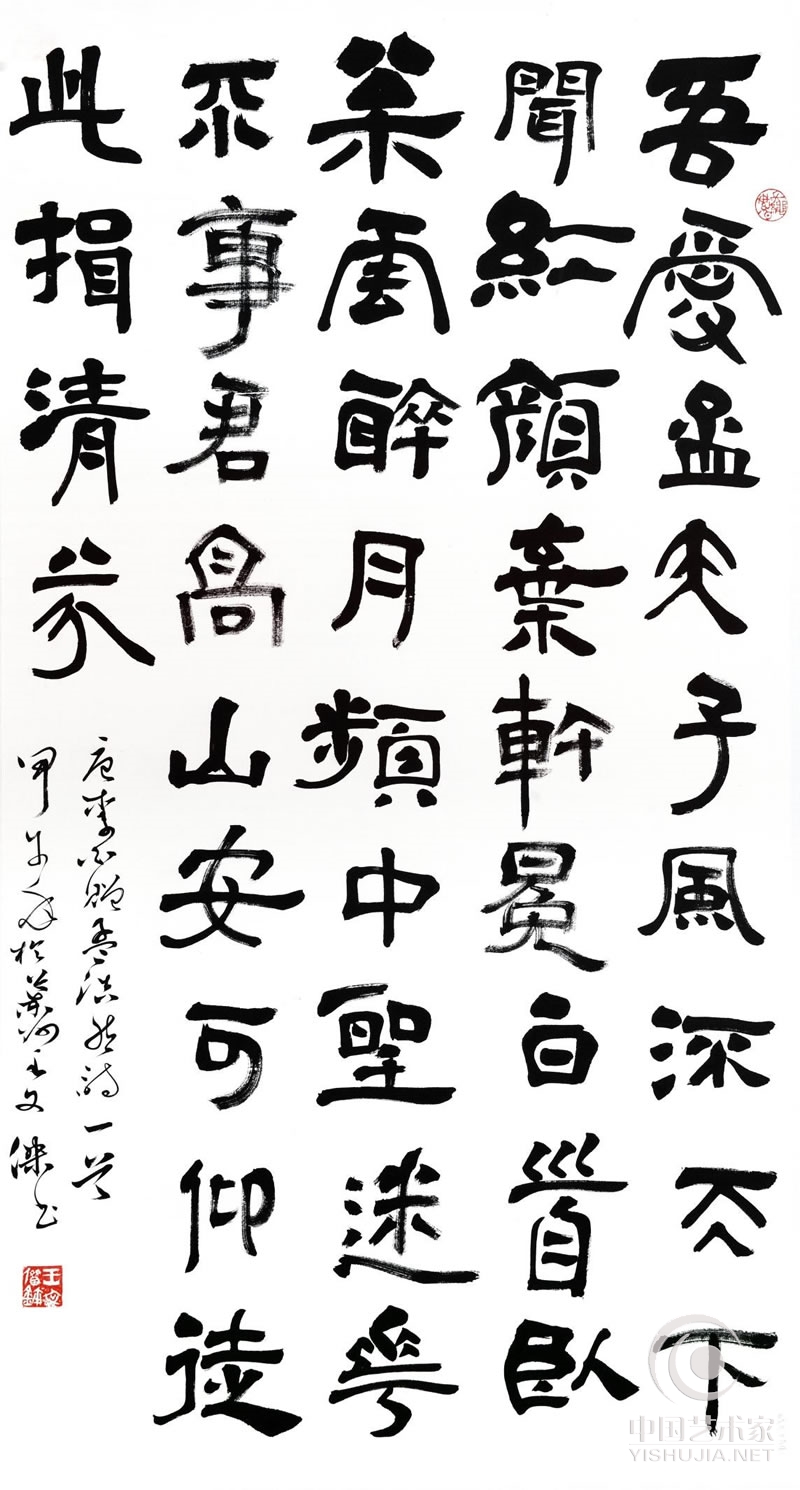 吾愛孟夫子風流天下
聞紅顏棄軒冕白首臥
松雲醉月頻中聖迷花
不事君高山安可仰徒
此揖清芬
唐李白贈孟浩然詩一首
甲午 於 州王文傑書
中国艺术家
YISHUJIA.NET